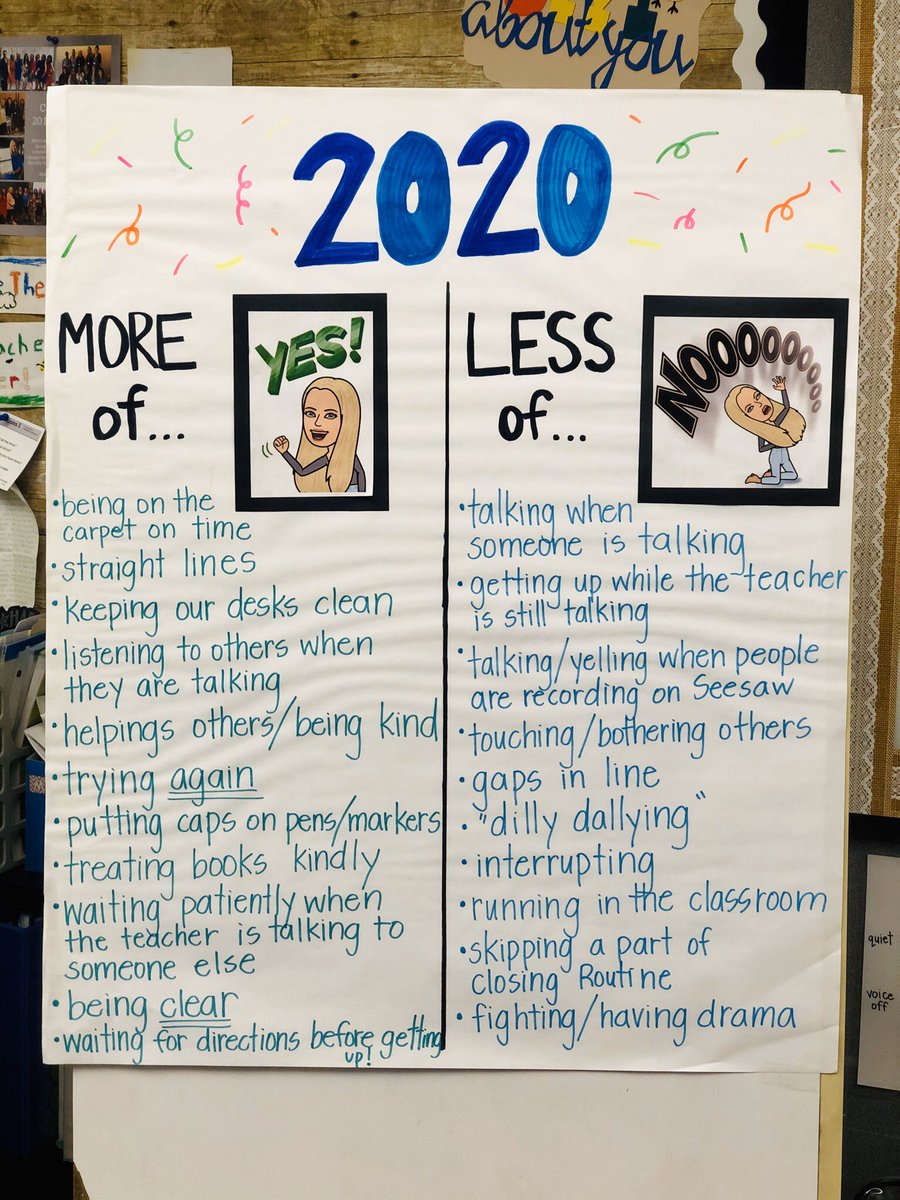 about you
2020
MORE
of...
YES!
•being on the
carpet on time
•straight lines
•keeping our desks clean
•listening to others when
they are talking
•helpings others/being kind
•trying again
•putting caps on pens/markers
•treating books kindly
•waiting patiently when
the teacher is talking to
someone else
•being clear
•waiting for directions before getting
up!
LESS
of...
NOOOOOOOO
•talking when
someone is talking
•getting up while the teacher
is still talking
•talking/yelling when people
are recording on Seesaw
•touching/bothering others
•gaps in line
•"dilly dallying"
•interrupting
•running in the classroom
•skipping a part of
closing Routine
•fighting/having drama
The
quiet
voice
off